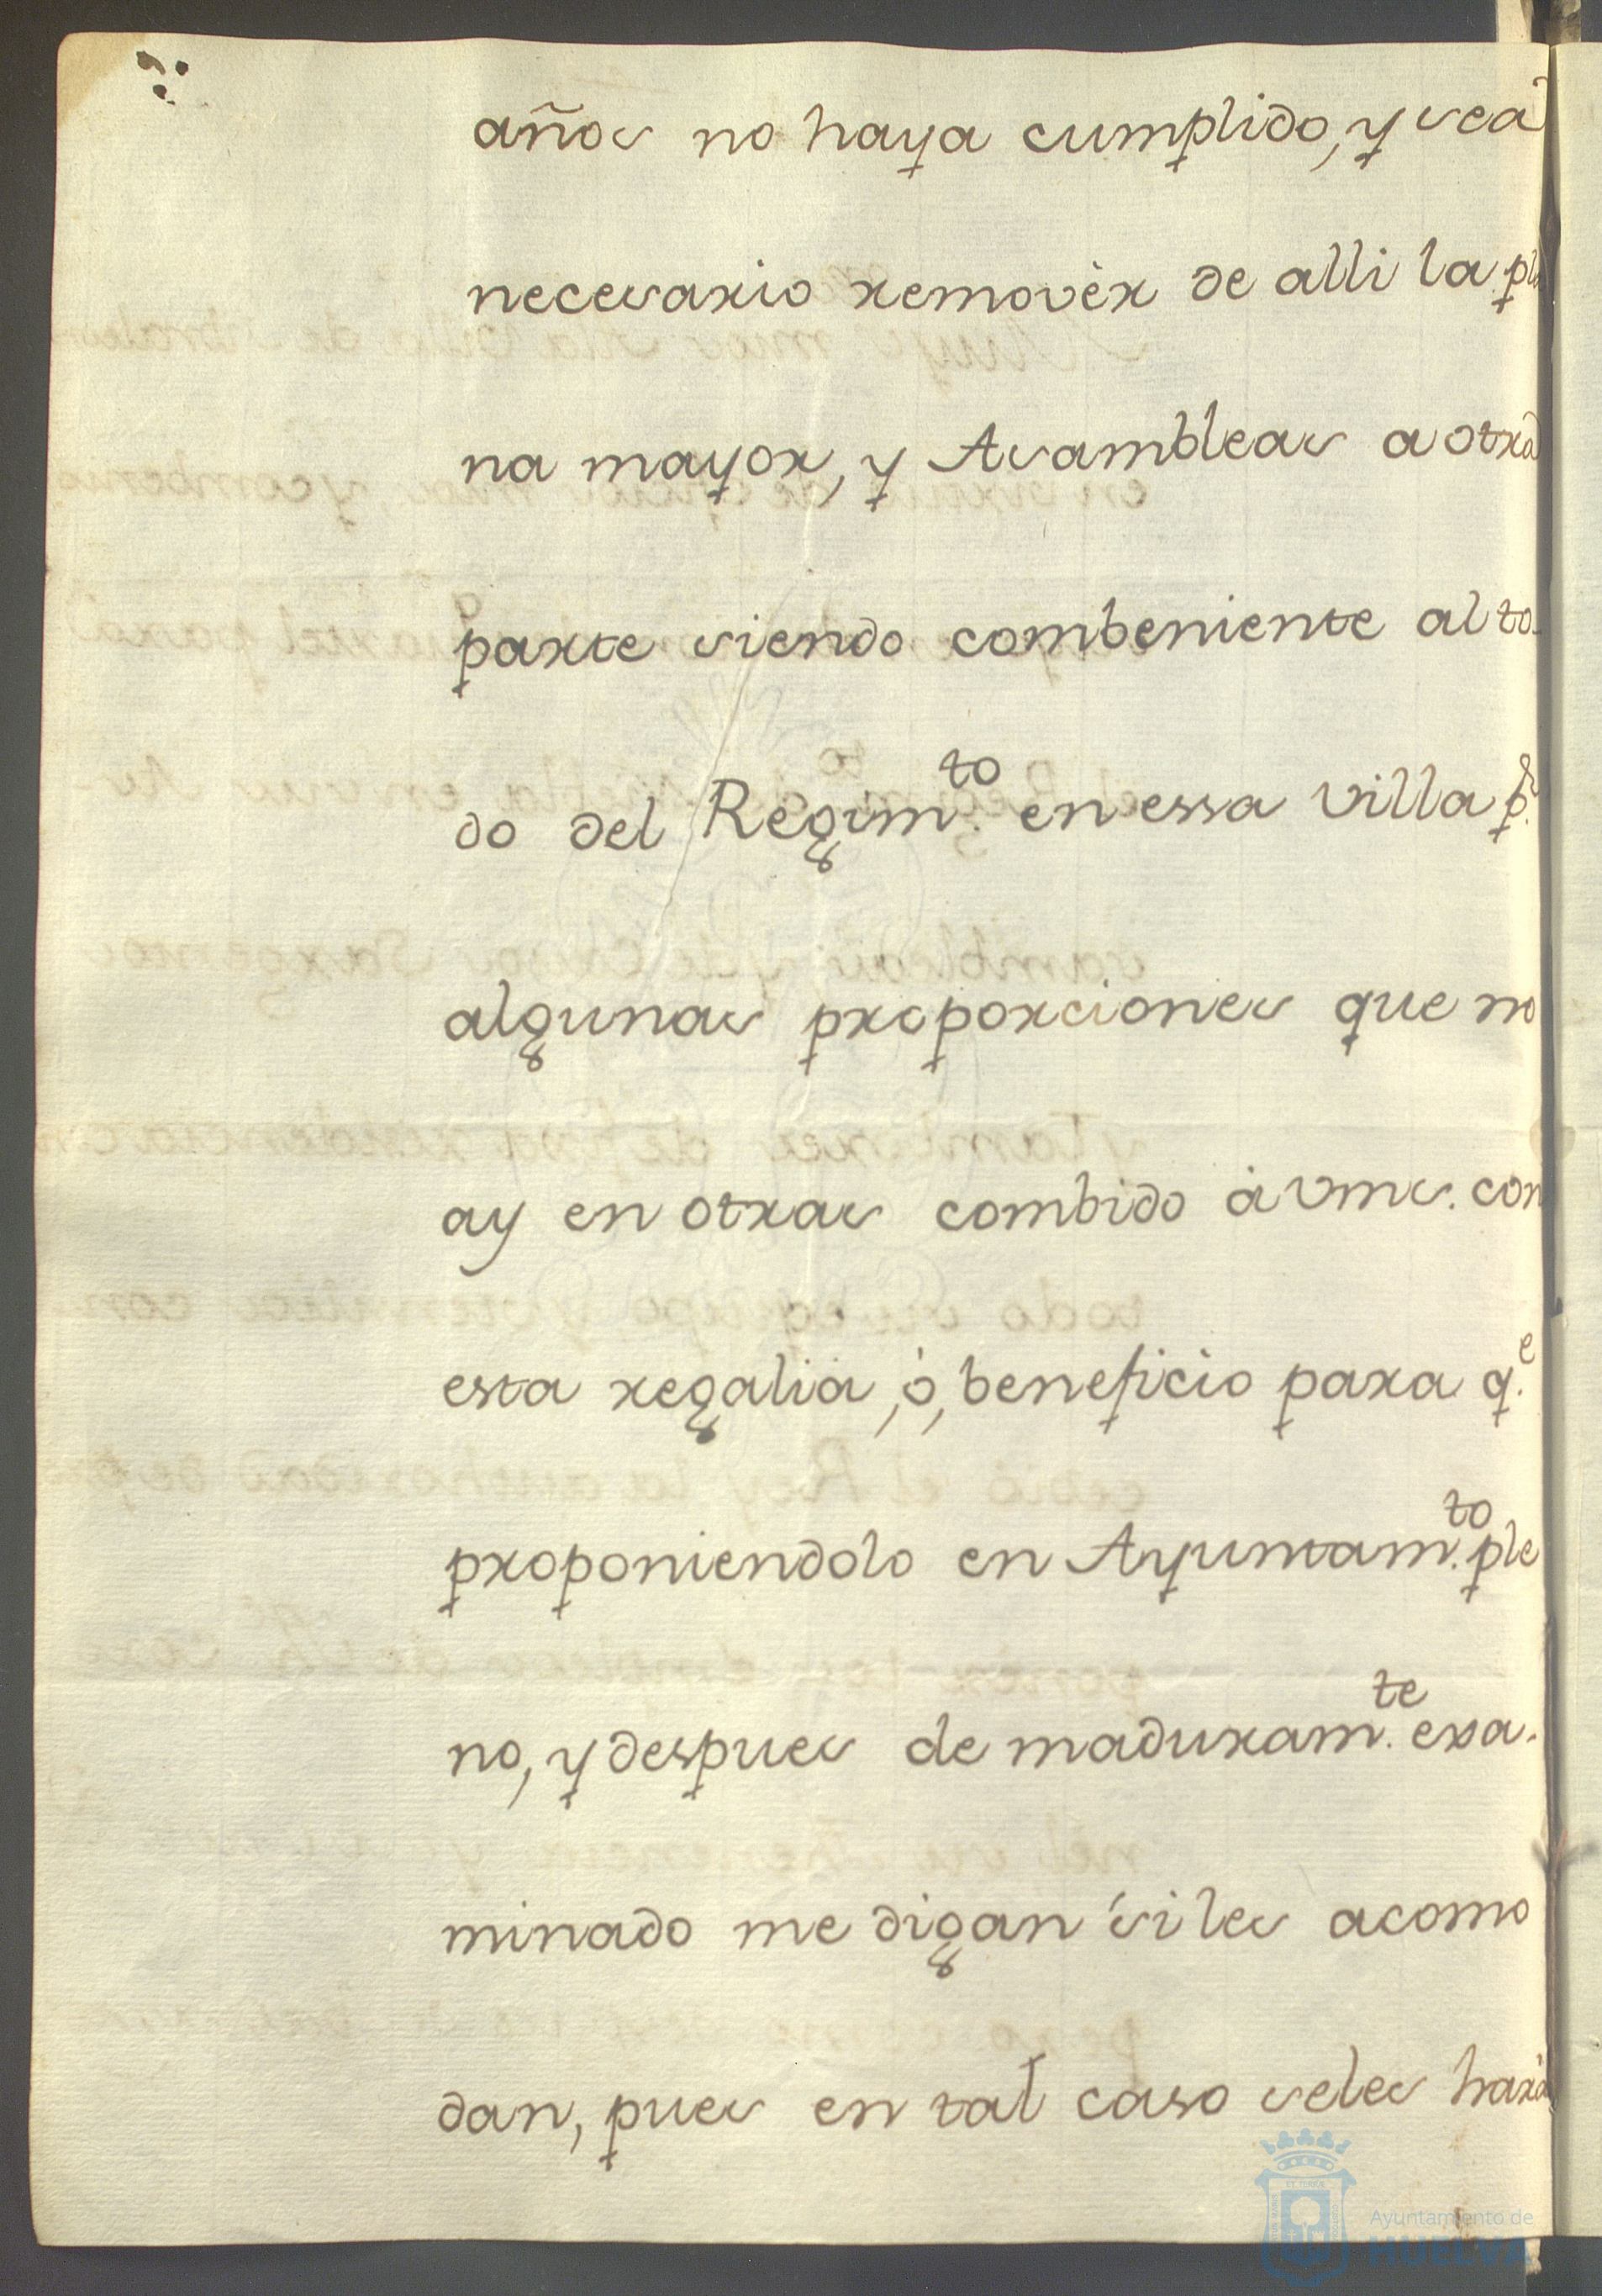 años no haya cumplido, y sea
necesario removèr de alli la pla
na mayor, y Asambleas a otra
parte siendo combeniente al to-
do del Regim.to en essa villa p.r
algunas proporciones que no
ay en otras combido à vms. con
esta regalia, ò, beneficio para q.e
proponiendolo en Ayuntam.to ple
no, y despues de maduram.te exa-
minado me digan si les acomo
dan, pues en tal caso seles hará
Ayuntamiento de
HUELVA